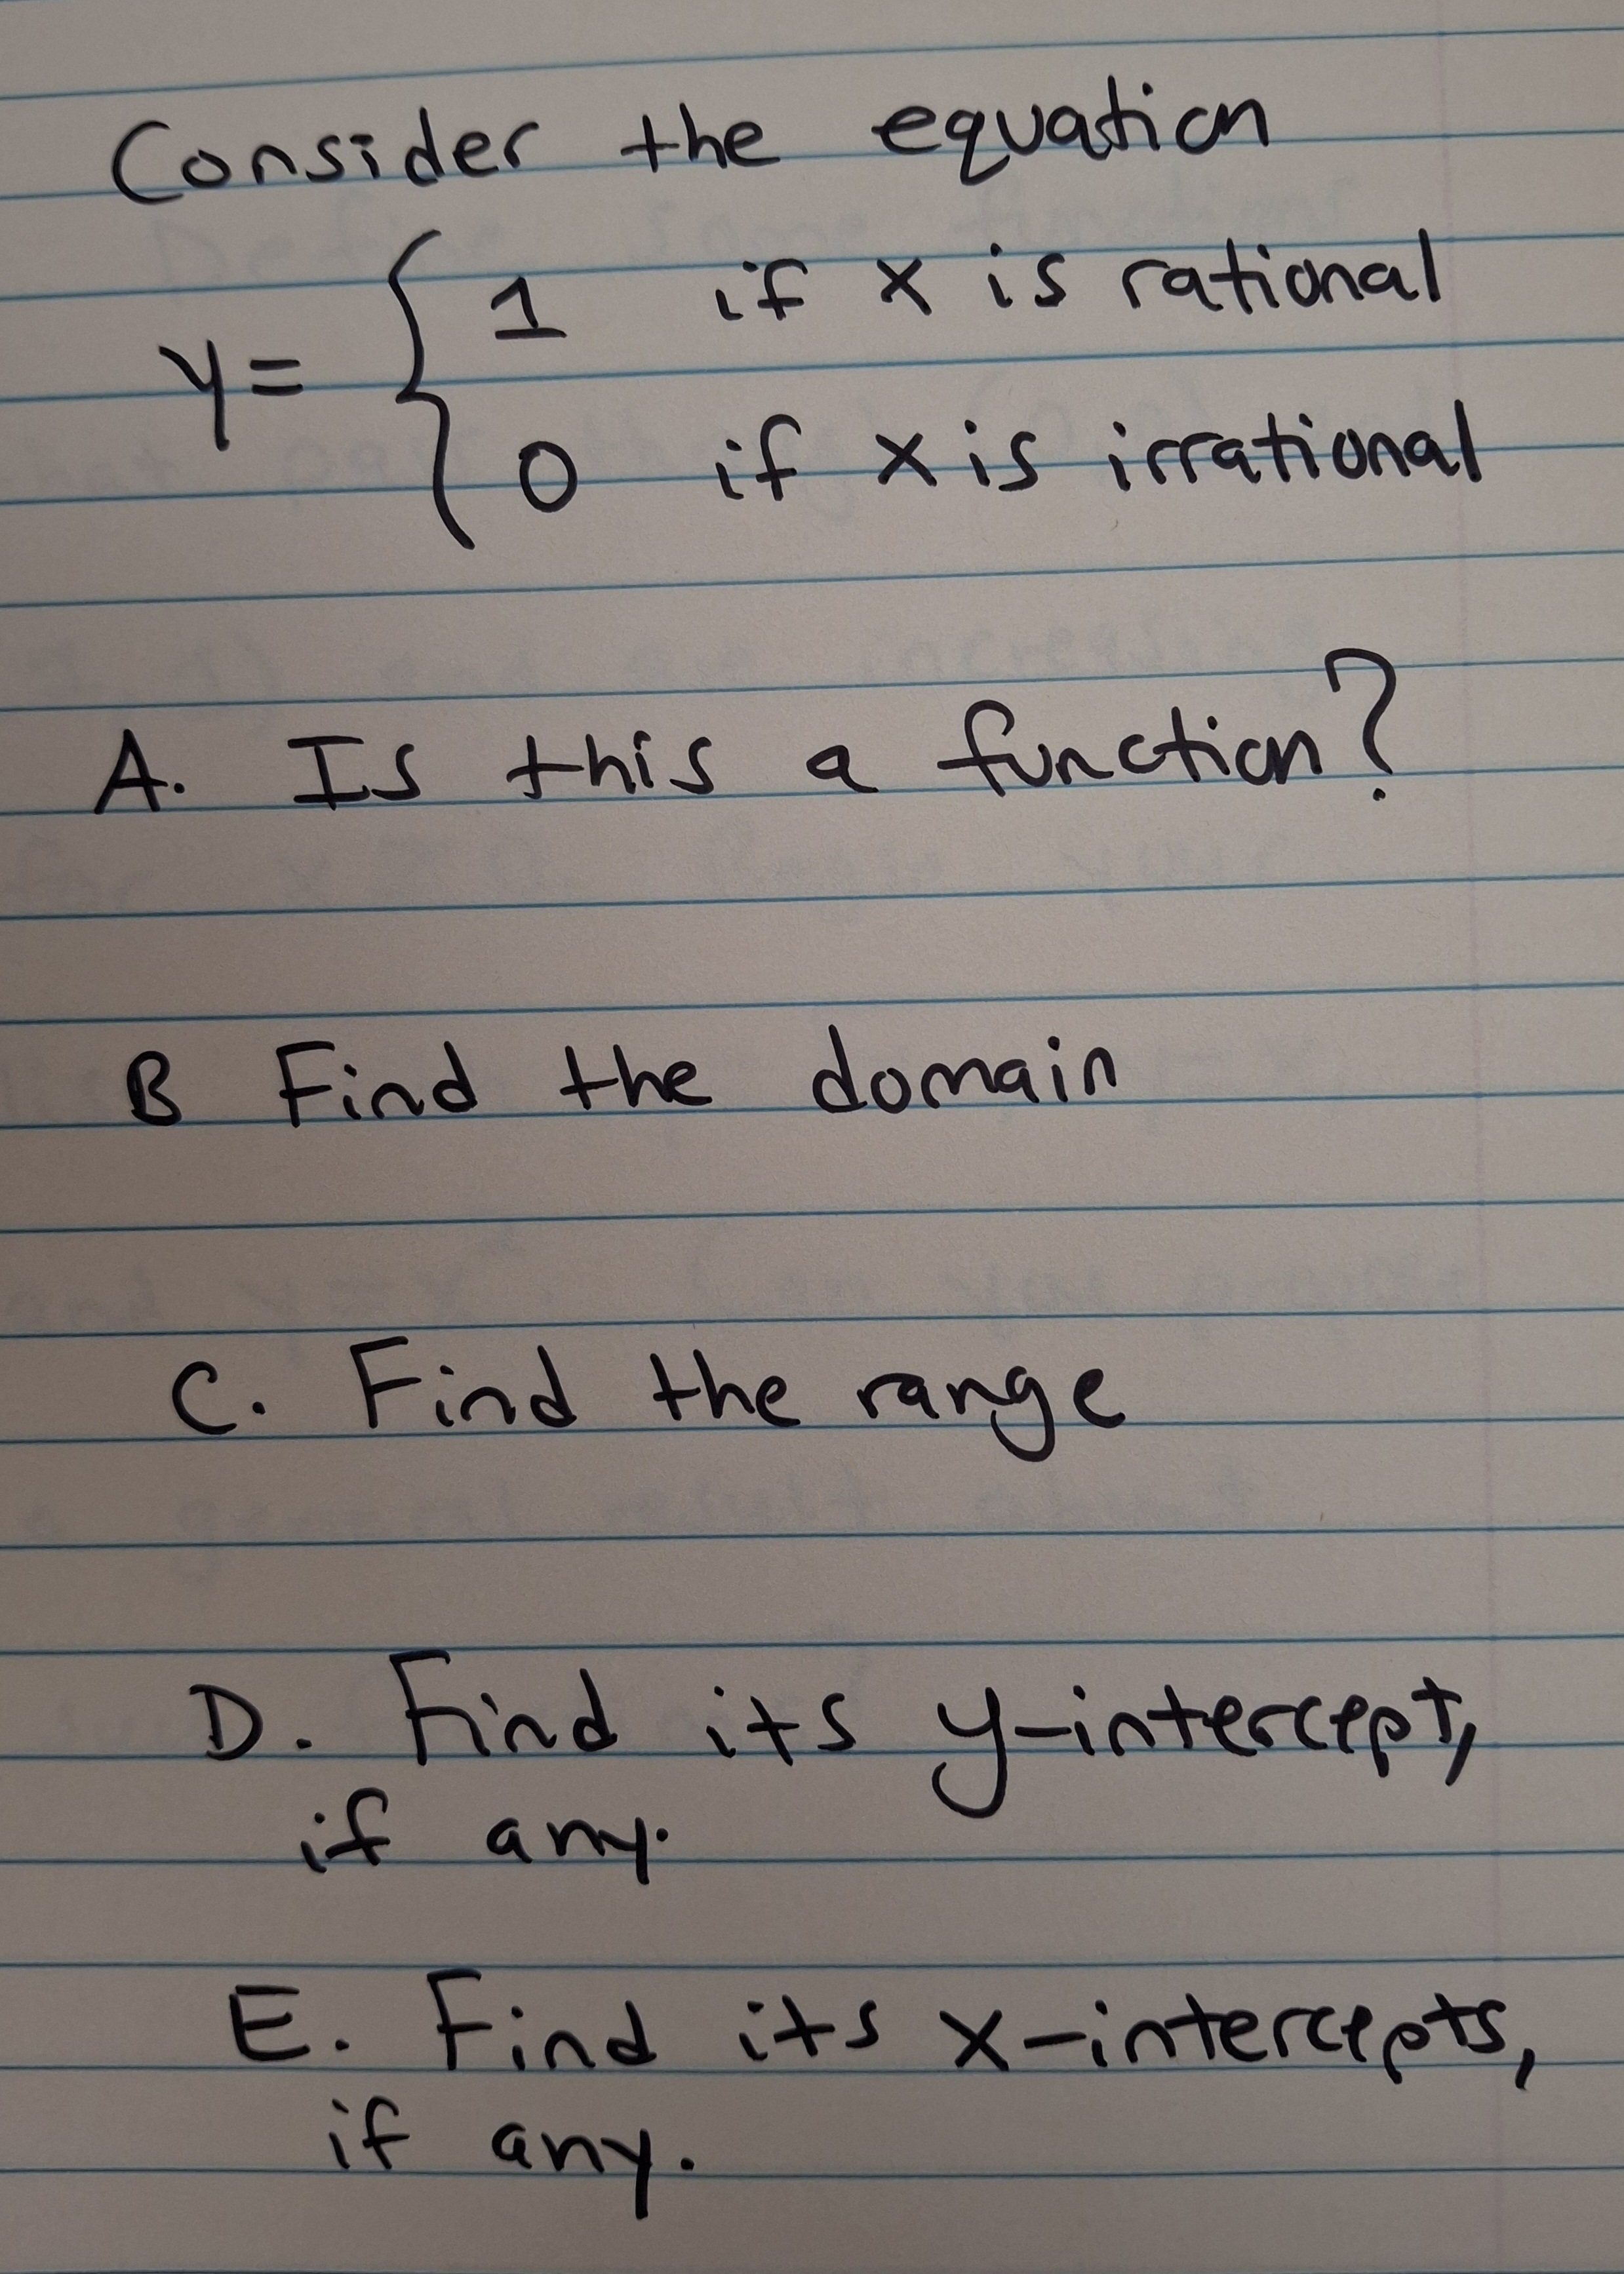 Consider the equation
y = { 1 if x is rational
0 if x is irrational
A. Is this a function?
B Find the domain
C. Find the range
D. Find its y-intercept,
if any.
E. Find its x-intercepts,
if any.